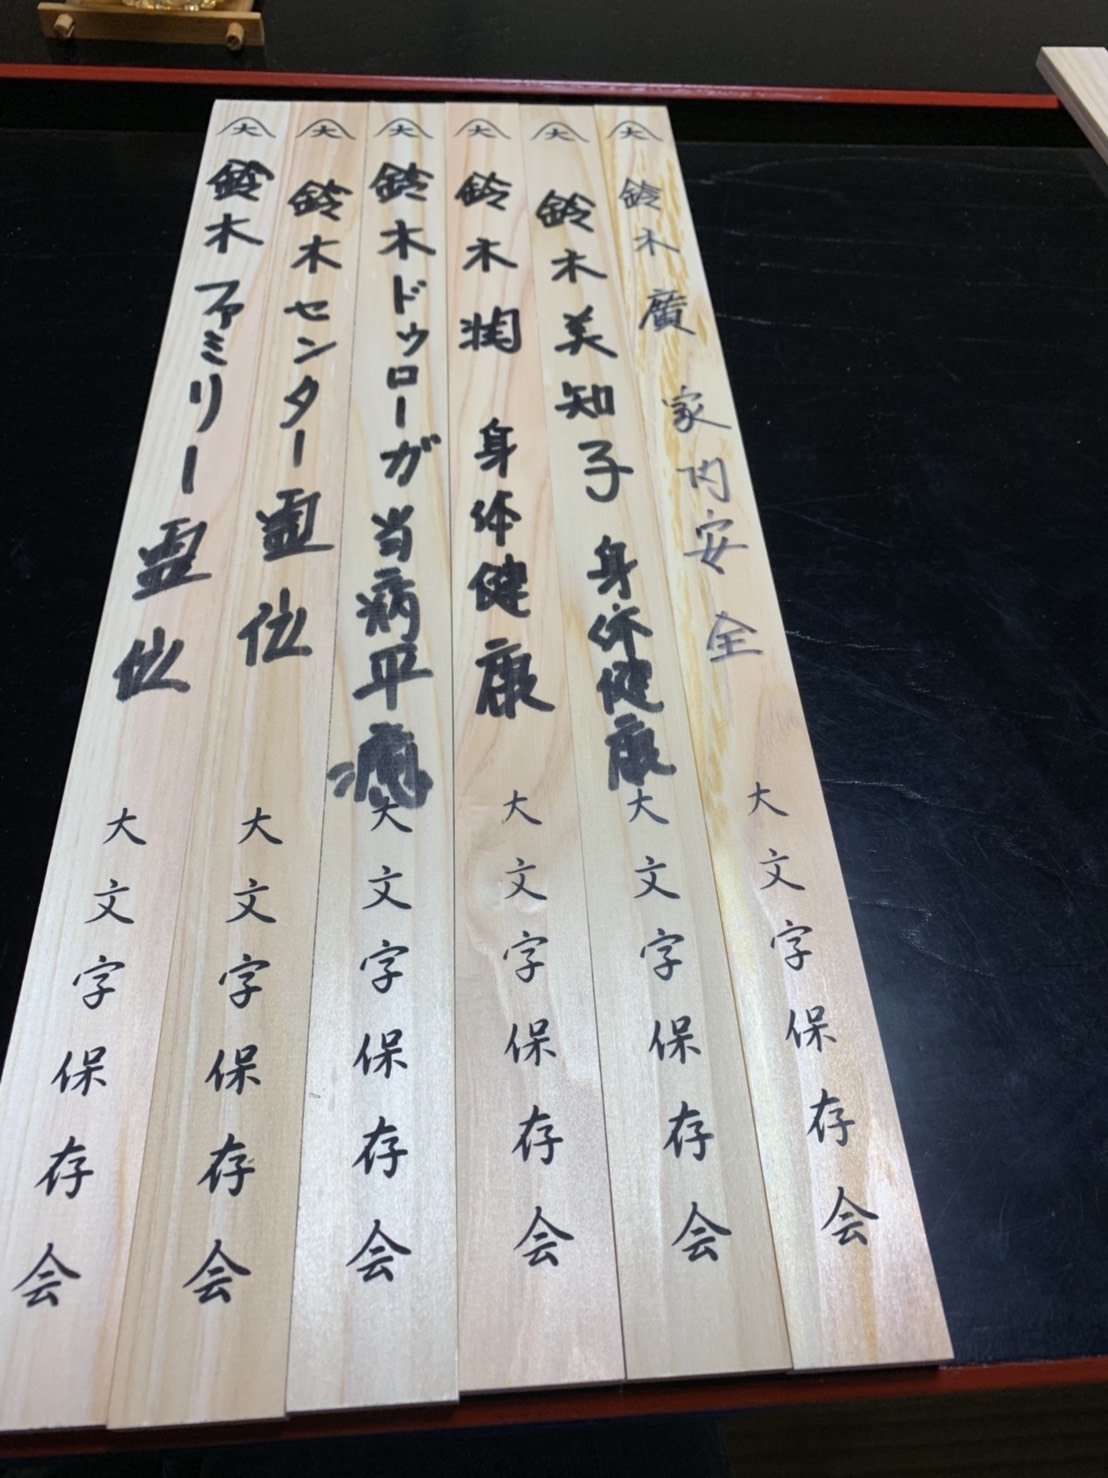 大 鈴木廣 家内安全 大文字保存会
大 鈴木美知子 身体健康 大文字保存会
大 鈴木 身体健康 大文字保存会
大 鈴木ドゥローガ 当病平癒 大文字保存会
大 鈴木センター 霊位 大文字保存会
大 鈴木ファミリー 霊位 大文字保存会